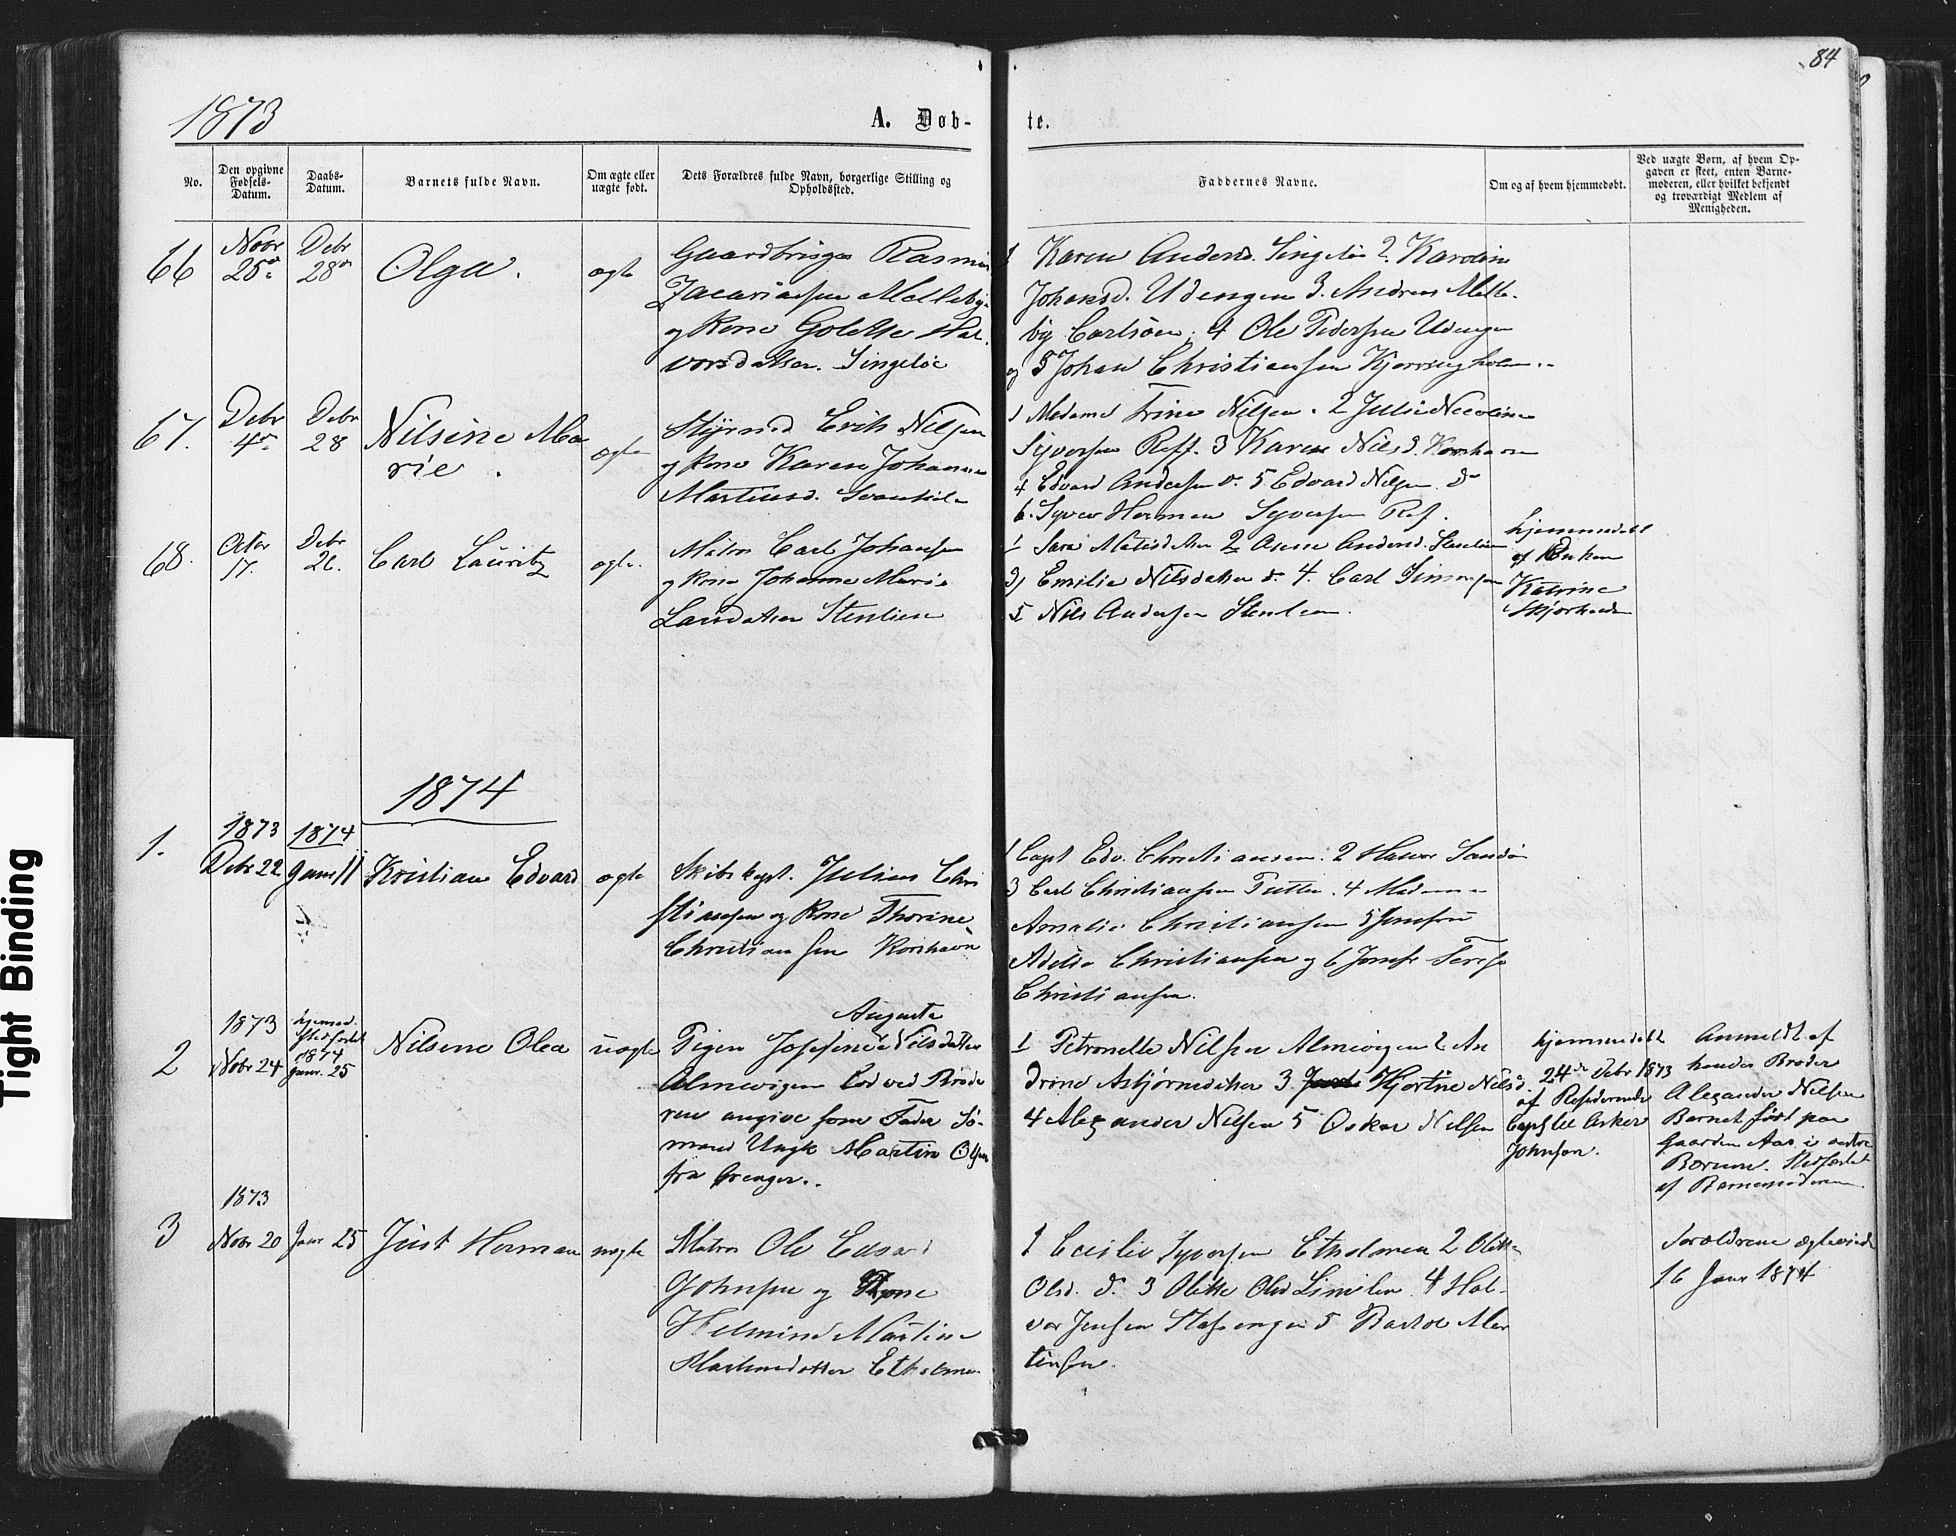 84
1873
A. Døb-
te.
No.
Den opgivne Fødsels-Datum.
Daabs-Datum.
Barnets fulde Navn.
Om ægte eller uægte født.
Dets Forældres fulde Navn, borgerlige Stilling og Opholdssted.
Faddernes Navne.
Om og af hvem hjemmedøbt.
Ved uægte Børn, af hvem Op-
gaven er skeet, enten Barne-
moderen, eller hvilket bekjendt
og troværdigt Medlem af
Menigheden.
66
Novbr
25de
Debr
28de
Olga.
ægte
Gaardbruger Rasmus
Zacariassen Melleby
og Kone Golette Hal-
vorsdatter. Singeløe
1 Karen Andersd. Singeløe 2. Karoline
Johansd. Udengen 3. Andreas Melle-
by Carlsøen. 4 Ole Pedersen Udengen
og 5 Johan Christiansen Kjerringholmen.
67.
Debr
4de
Debr
28
Nilsine Ma
rie.
ægte
Styrmd Erik Nilsen
og Kone Karen Johanne
Martinsd.
1 Madame Trine Nilsen. 2 Julie Nicoline
Syversen Reff. 3 Karen Nilsd. Korshavn
4 Edvard Andersen do. 5 Edvard Nilsen do
6. Syver Herman Syversen Ref.
68.
Octbr
17.
Debr
26.
Carl Lauritz
ægte.
Matro Carl Johansen
og Kone Johanne Marie
Larsdatter Stenlien
1 Sara Matisdatter 2 Anne Andersd.
3) Emilie Nilsdatter do. 4. Carl Simonsen
5 Nils Andersen Stenlien.
hjemmedøbt
af Enken
Katrine
1874
1.
1873
Debr 22
1874
Janr 11
Kristian Edvard
ægte
Skibskapt. Julius Chri
stiansen og Kone Thorine
Christiansen Korshavn
1 Capt Edv. Christiansen. 2 Halvor Sandøe
3 Carl Christiansen 4 Madame
Amalie Christiansen 5 Jomfru
Adelia Christiansen og 6 Jomfr Terese
Christiansen.
2
1873
Novbr 24
hjemmed.
Stedfæstet
1874
Janr. 25
Nilsine Olea
uægte
Augusta
Pigen Josefine Nilsdatter
Almevigen Lod ved Brode
ren angive som Fader Sø-
mand Ungk Martin Olsen
fra
1 Petronelle Nilsen Almevigen 2 An
drine Asbjørnsdatter 3 Hjertine Nilsd.
4 Alexander Nilsen 5 Oskar Nilsen
hjemmedøbt
24de Debr 1873
af Residerende
Capl i Asker
Johnson.
Anmeldt af
hendes Broder
Alexander Nilsen
Barnet født paa
Gaarden Aas i vestre
Bærum. Stedfæstet
af Barnemoderen.
3
1873
Novbr 20
Janr 25
Just Herman
uægte
Matro Ole Edvard
Johnsen og Kone
Helmine Martine
Martinsdatter
1 Cecilie Syversen 2 Olette
Olsd. do. 3 Olette Olsd 4 Hal-
vor Jensen 5 Bartol Mar
tinsen.
Forældrene ægteviede
16 Janr 1874
Tight Binding